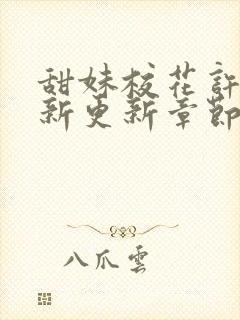 甜妹校花許
新更新章節
八爪雲